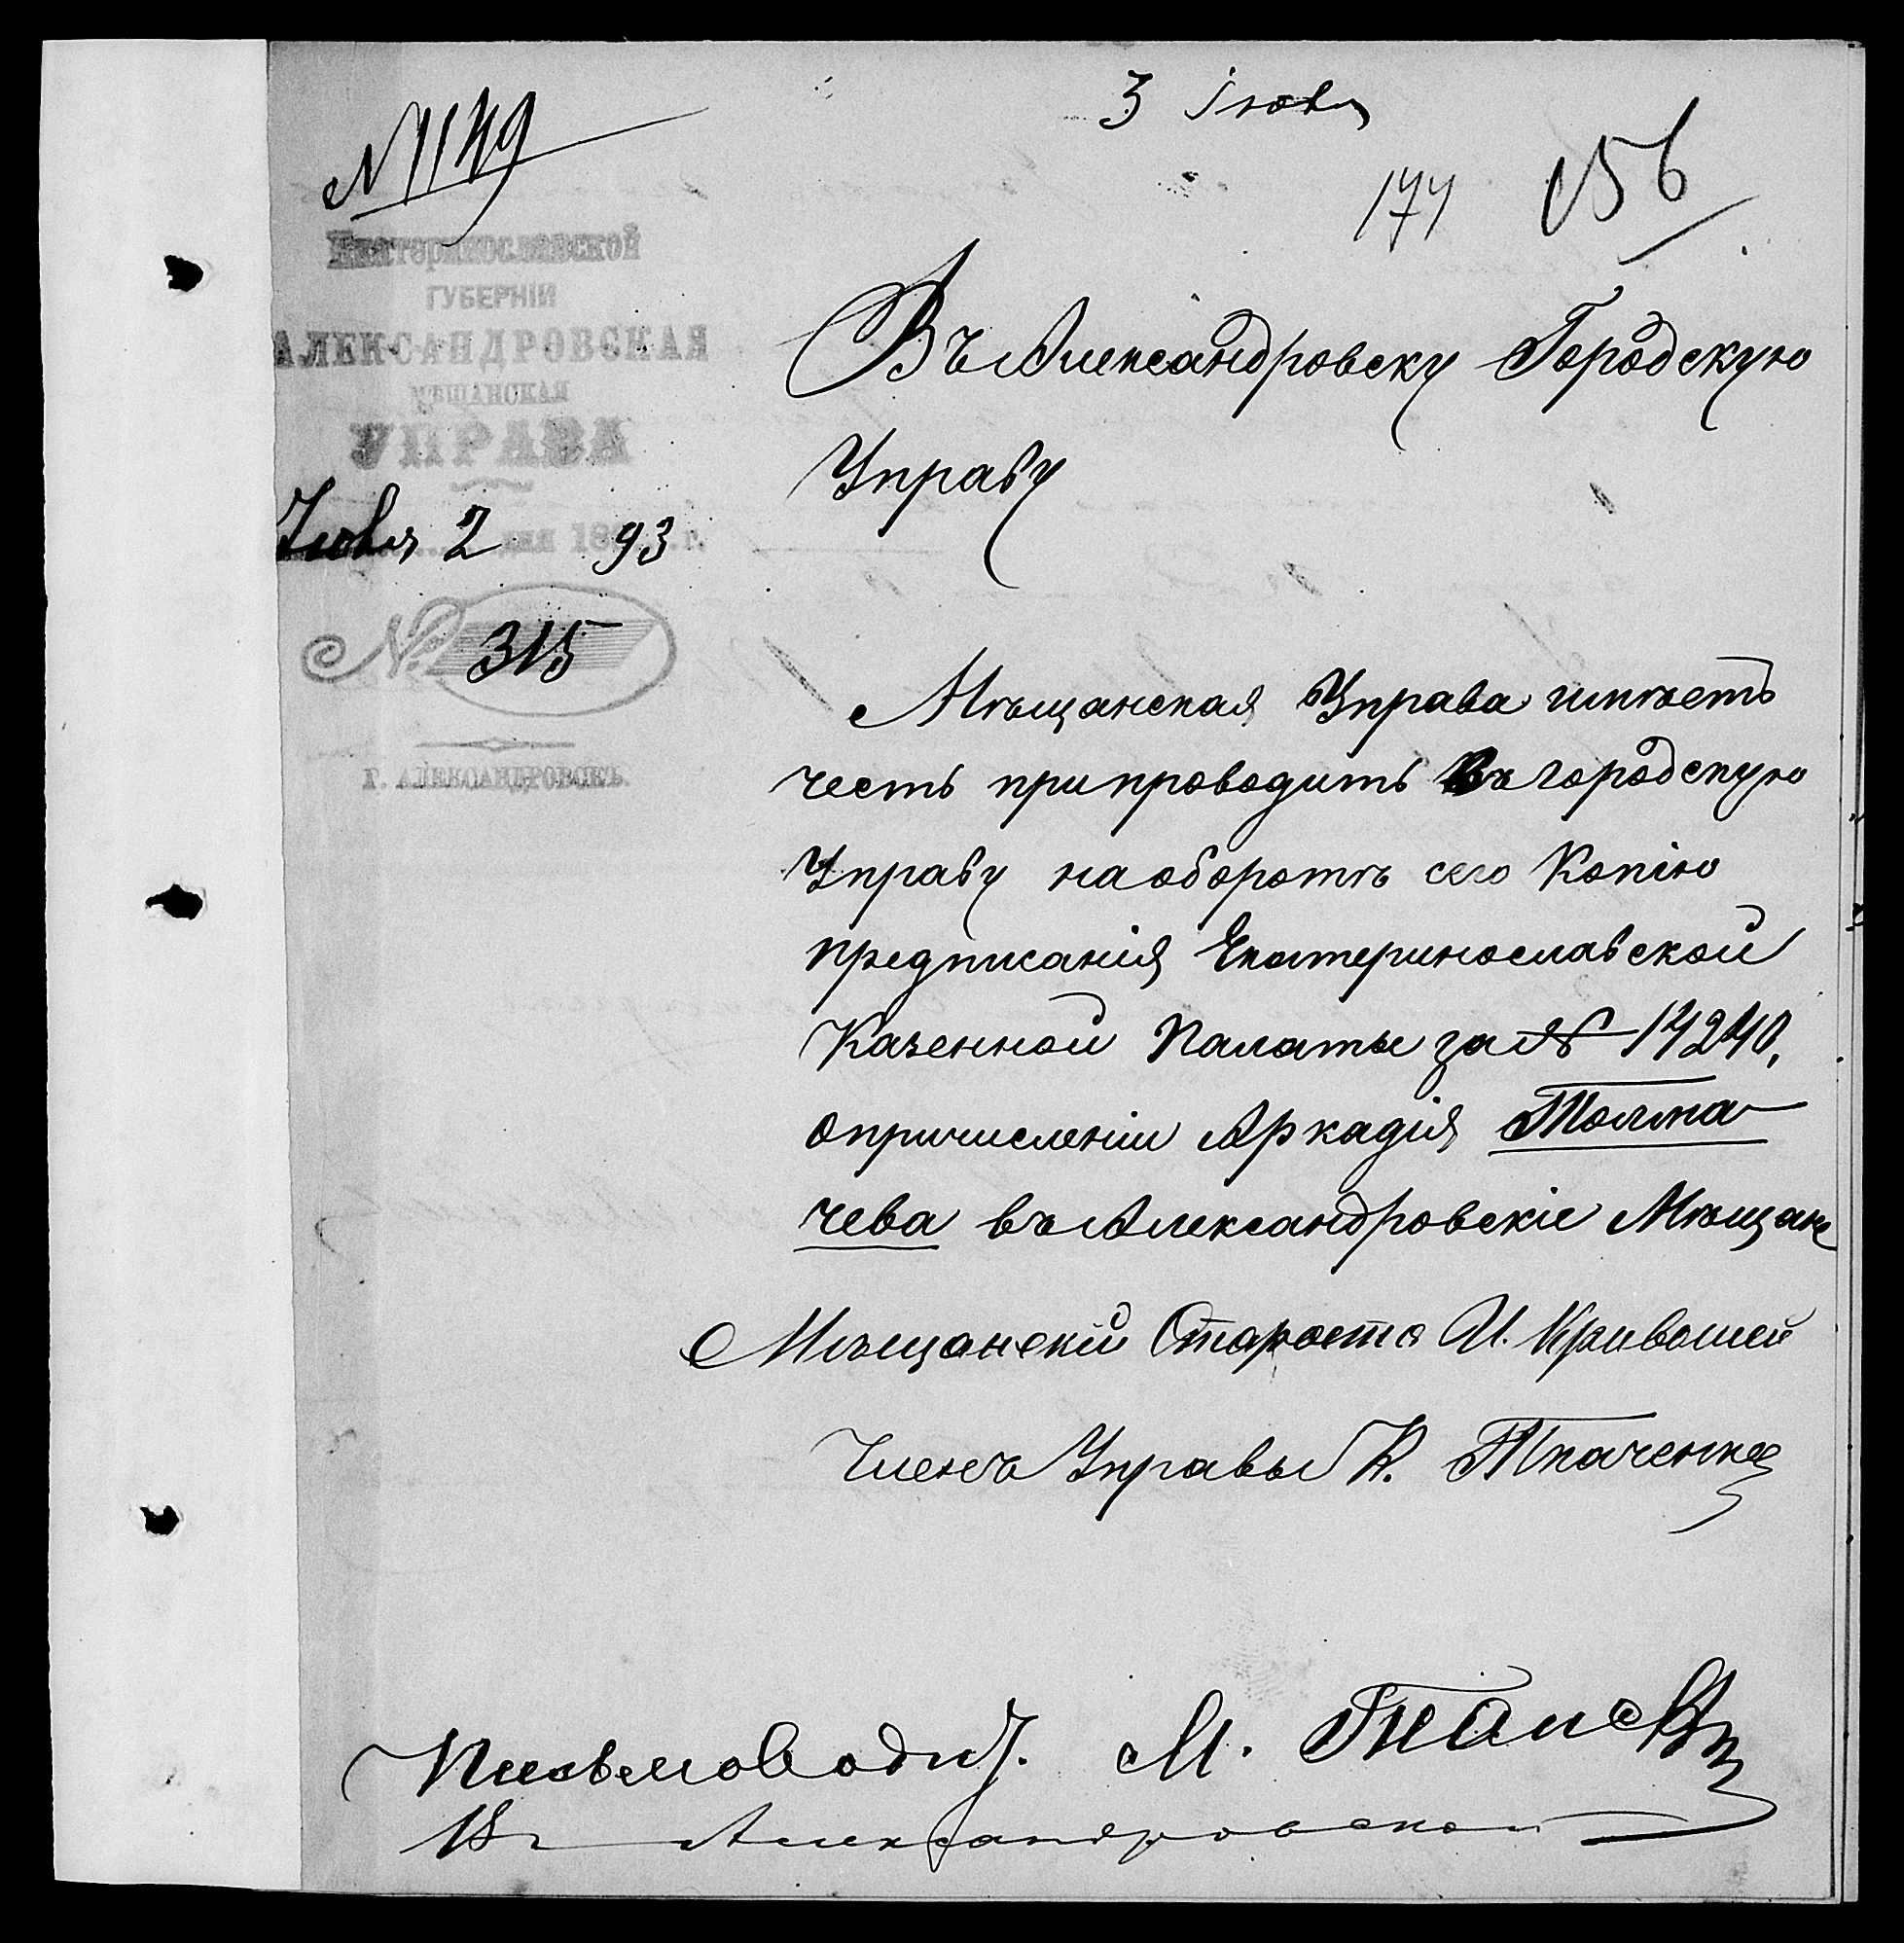 3 Іюня
№ 1149
177 156
Екатеринославской
ГУБЕРНІИ
АЛЕКСАНДРОВСКАЯ
МѢЩАНСКАЯ
УПРАВА
Іюня 2 дня 1893 г.
№ 315
Г. АЛЕКСАНДРОВСКЪ.
Въ Александровску Городскую
Управу
Мѣщанская Управа имѣетъ
честь припроводить въ городскую
Управу на оборотѣ сего Копію
предписанія Екатеринославской
Казенной Палаты за № 14240,
о причисленіи Аркадія Толма
чева въ Александровскіе Мѣщане
Мѣщанскій Староста И. Кривошей
Членъ Управы К. Ткаченко
Письмоводит. М.
Александровской